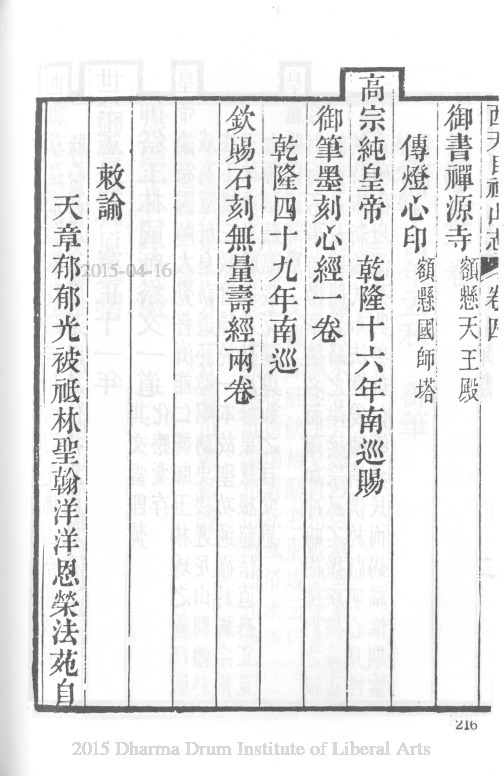 西天目祖山志 卷四
御書禪源寺 額懸天王殿
傳燈心印 額懸國師塔
高宗純皇帝 乾隆十六年南巡賜
御筆墨刻心經一卷
乾隆四十九年南巡
欽賜石刻無量壽經兩卷
敕諭
天章郁郁光被祇林聖翰洋洋恩榮法苑自
2015-04-16
216
2015 Dharma Drum Institute of Liberal Arts